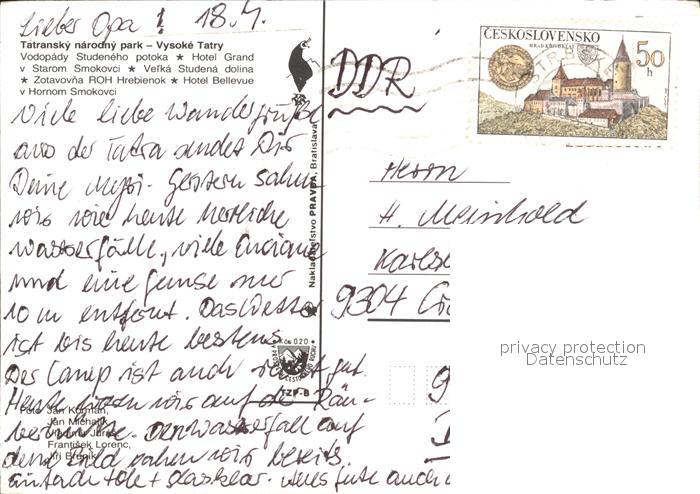 Lieber Opa! 18.7.
Tatranský národný park – Vysoké Tatry
Vodopády Studeného potoka ★ Hotel Grand
v Starom Smokovci ★ Veľká Studená dolina
★ Zotavovňa ROH Hrebienok ★ Hotel Bellevue
v Hornom Smokovci
Viele liebe Wandergrüße
aus der Tatra sendet Dir
Deine Gestern sahen
wir wie heute herrliche
Wasserfälle, viele Enziane
und eine Gemse nur
10 m entfernt. Das Wetter
ist bis heute bestens.
Der Camp ist auch sehr gut.
Heute gehen wir auf de Räu-
Den Wasserfall auf
dem Bild sahen wir bereits.
einfach toll + glasklar. Alles Gute auch
Foto Ján Korman,
Ján Michalík,
Vladimír Jánsky,
František Lorenc,
Jiří
Nakladateľstvo PRAVDA, Bratislava
Kčs 0,20
TZP-B
DDR
ČESKOSLOVENSKO
HRAD KŘIVOKLÁT
50
h
Herrn
H. Meinhold
Karls
9304
9
privacy protection
Datenschutz